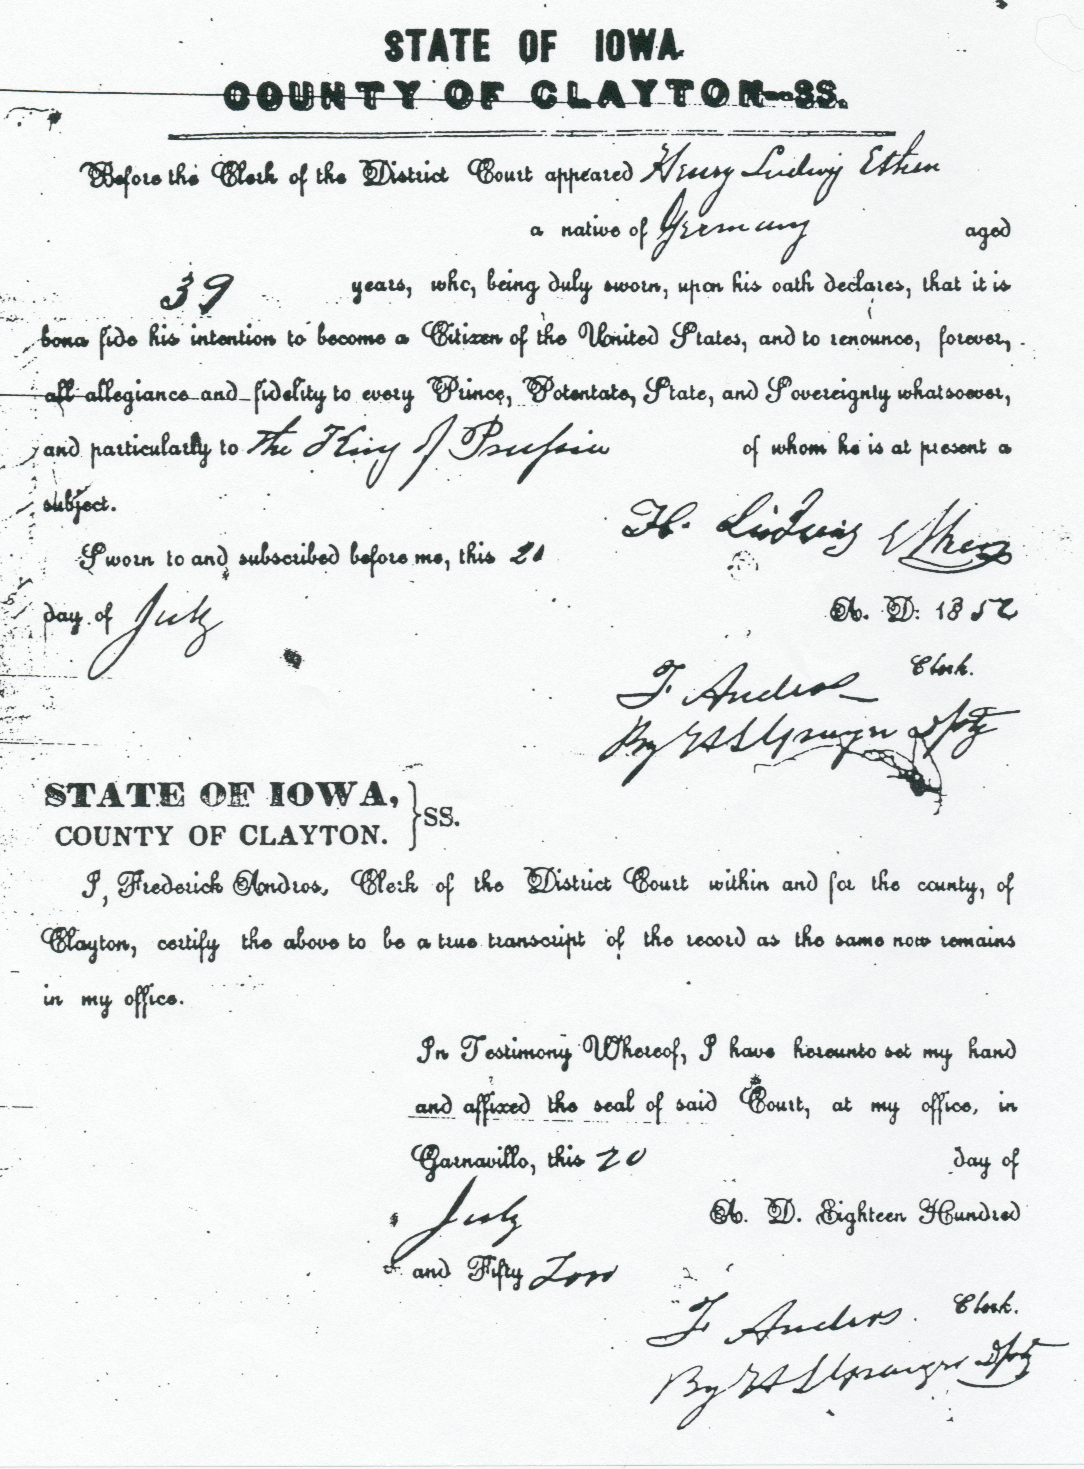 STATE OF IOWA.
COUNTY OF CLAYTON--SS.
Before the Clerk of the District Court appeared Henry Ludwig Ethen
a native of Germany aged
39 years, who, being duly sworn, upon his oath declares, that it is
bona fide his intention to become a Citizen of the United States, and to renounce, forever,
all allegiance and fidelity to every Prince, Potentate, State, and Sovereignty whatsoever,
and particularly to the King of Prussia of whom he is at present a
subject.
H. Ludwig Ethen
Sworn to and subscribed before me, this 20
day of July A. D: 1852
F Andros Clerk.
By Dpty
STATE OF IOWA,
COUNTY OF CLAYTON. } SS.
I, Frederick Andros, Clerk of the District Court within and for the county, of
Clayton, certify the above to be a true transcript of the record as the same now remains
in my office.
In Testimony Whereof, I have hereunto set my hand
and affixed the seal of said Court, at my office, in
Garnavillo, this 20 day of
July A. D. Eighteen Hundred
and Fifty Two
F Andros. Clerk.
By Dpty